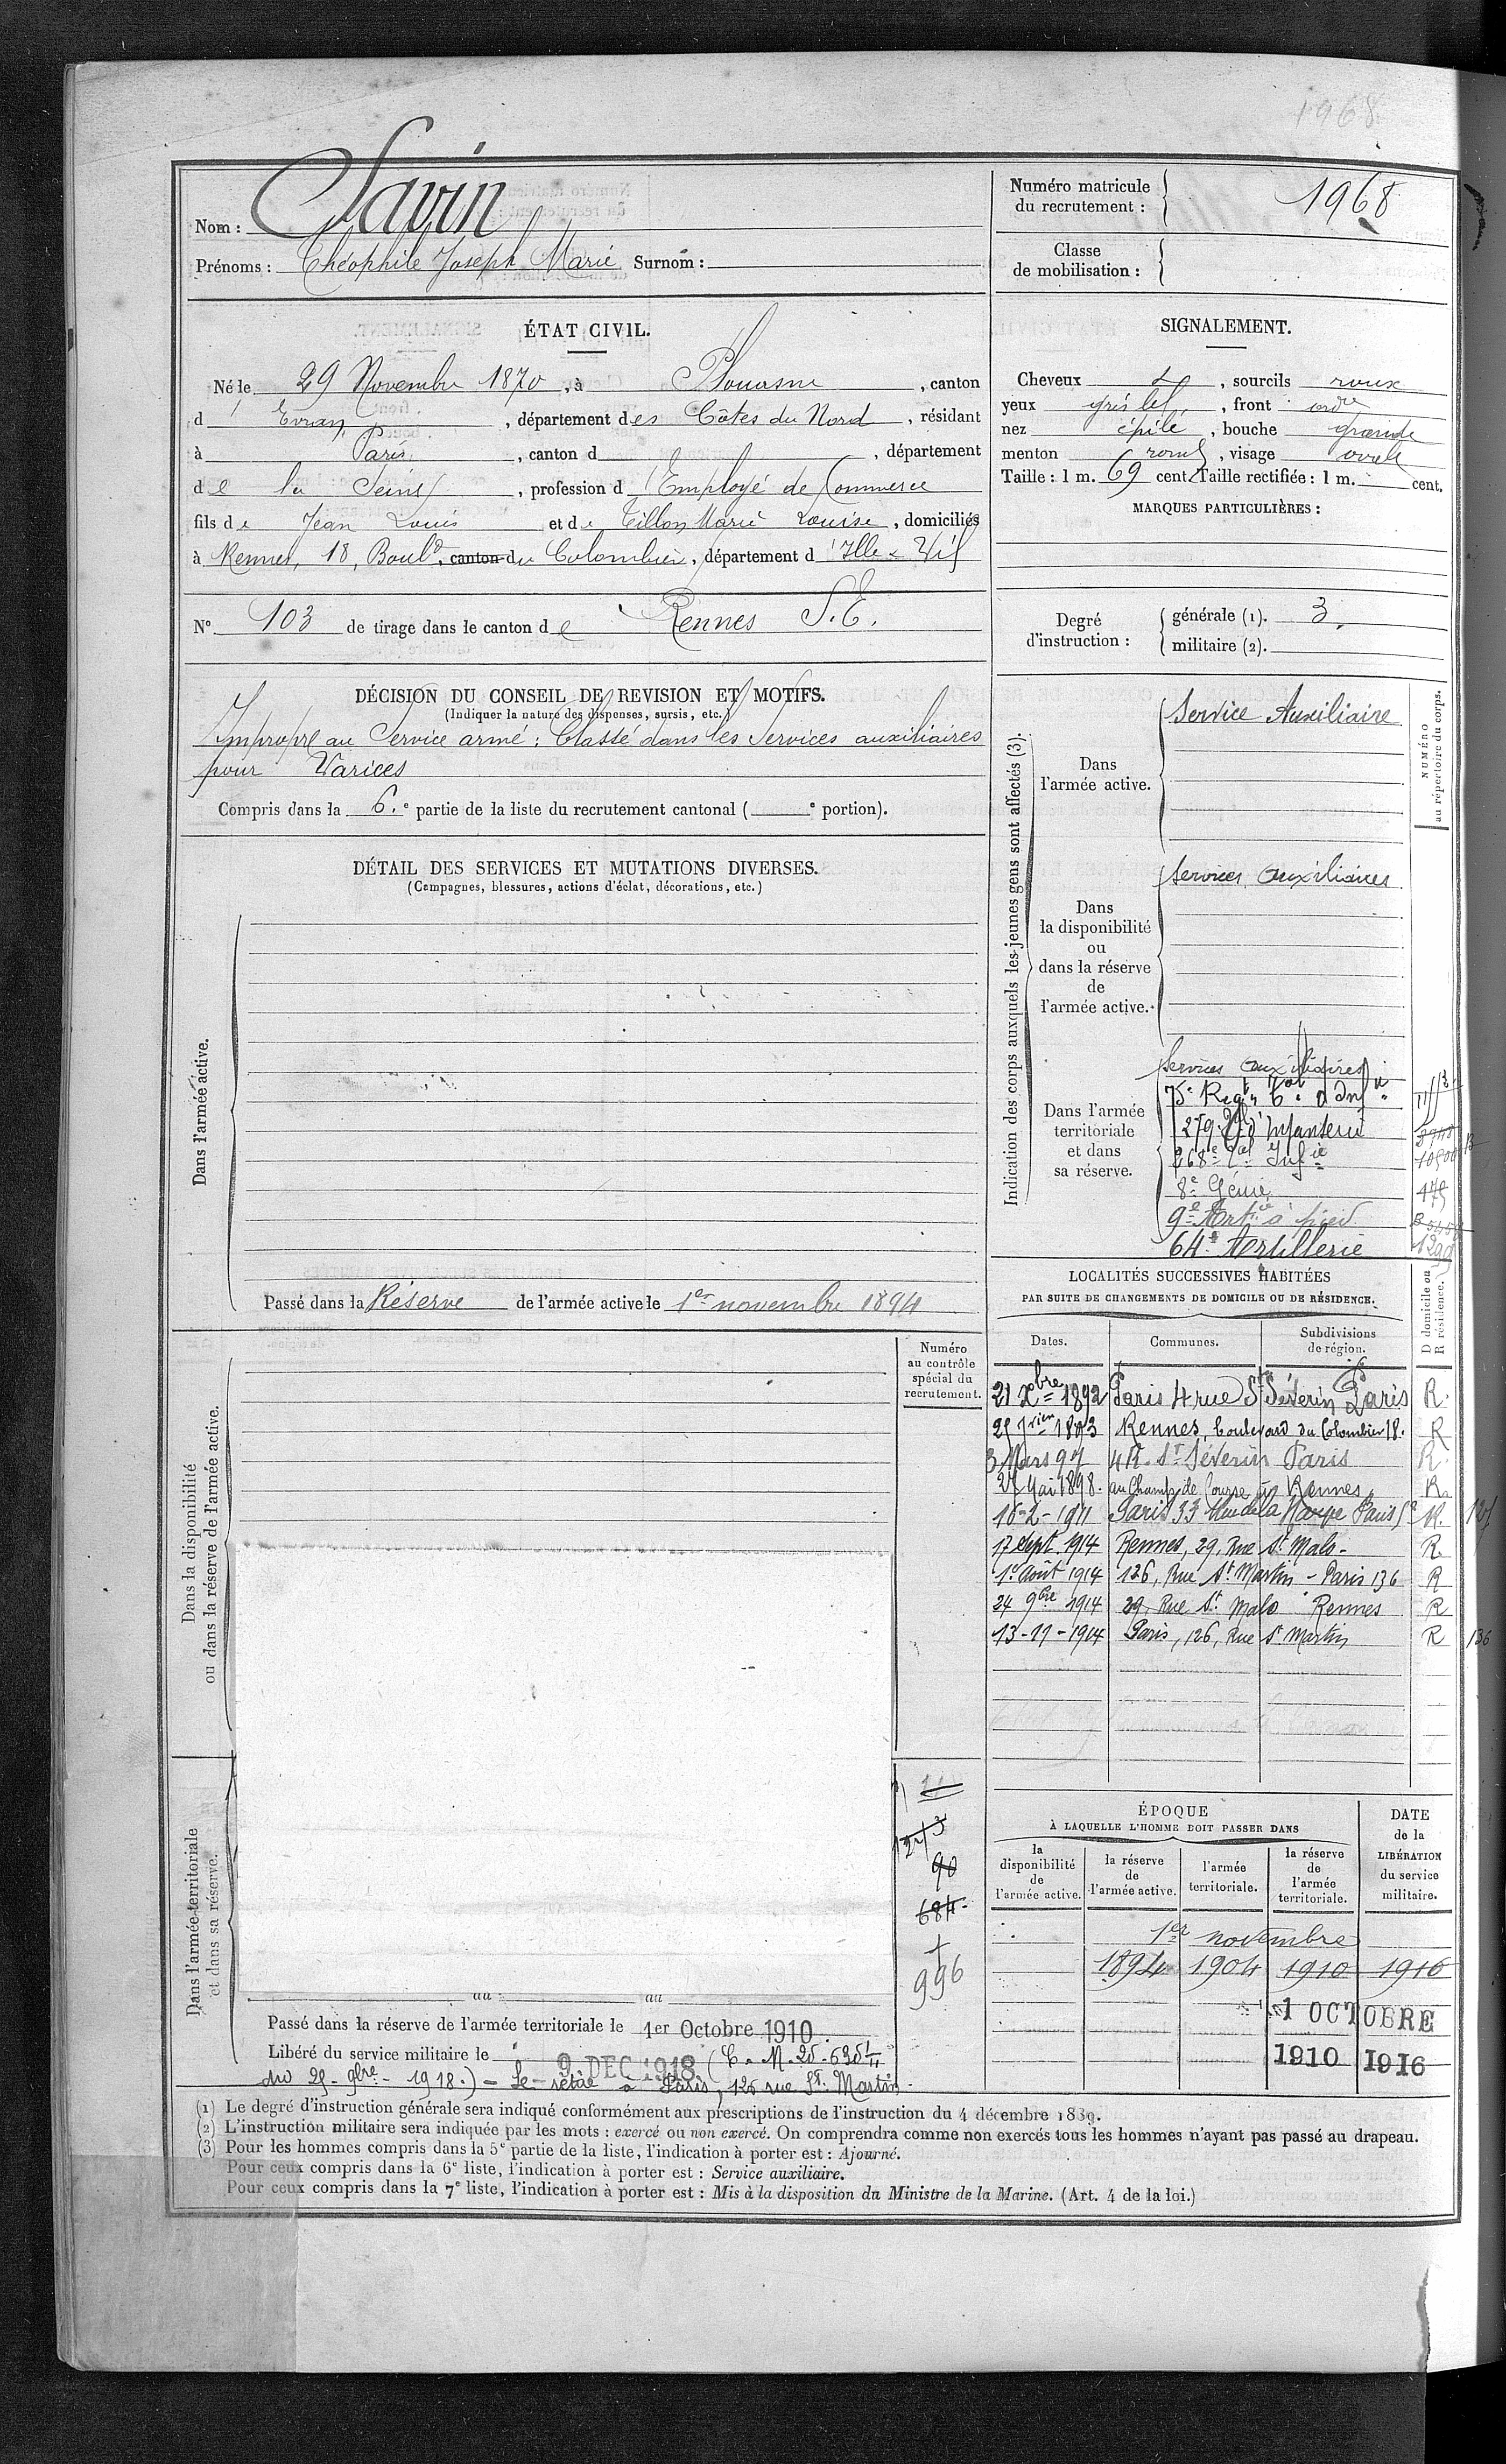 1968
Nom : Savin
Prénoms : Théophile Joseph Marie Surnom :
Numéro matricule du recrutement : 1968
Classe de mobilisation :
ÉTAT CIVIL.
Né le 29 Novembre 1870, à Plouasne, canton
d'Evran, département des Côtes du Nord, résidant
à Paris, canton d , département
de la Seine, profession d'Employé de Commerce
fils de Jean Louis et de Tillon Marie Louise, domiciliés
à Rennes, 18, Boulᵈ, canton du Colombier, département d'Ille & Vil
N° 103 de tirage dans le canton de Rennes S.E.
SIGNALEMENT.
Cheveux , sourcils roux
yeux gris , front ordʳᵉ
nez , bouche grande
menton rond, visage ovale
Taille : 1 m. 69 cent. Taille rectifiée : 1 m. cent.
MARQUES PARTICULIÈRES :
Degré d'instruction :
générale (1). 3.
militaire (2).
DÉCISION DU CONSEIL DE REVISION ET MOTIFS.
(Indiquer la nature des dispenses, sursis, etc.)
Impropre au Service armé : Classé dans les Services auxiliaires
pour Varices
Compris dans la 6.e partie de la liste du recrutement cantonal ( e portion).
DÉTAIL DES SERVICES ET MUTATIONS DIVERSES.
(Campagnes, blessures, actions d'éclat, décorations, etc.)
Dans l'armée active.
Passé dans la Réserve de l'armée active le 1er novembre 1894
Dans la disponibilité
ou dans la réserve de l'armée active.
Numéro
au contrôle
spécial du
recrutement.
Indication des corps auxquels les jeunes gens sont affectés (3).
NUMÉRO
au répertoire du corps.
Dans
l'armée active.
Service Auxiliaire
Dans
la disponibilité
ou
dans la réserve
de
l'armée active.
Services Auxiliaires
Dans l'armée
territoriale
et dans
sa réserve.
Services auxiliaires
75e Regt Tal d'Infie
279e d'Infanterie
268e Tal Infie
8e Génie
475
9e Artie à pied
64e Artillerie
LOCALITÉS SUCCESSIVES HABITÉES
PAR SUITE DE CHANGEMENTS DE DOMICILE OU DE RÉSIDENCE.
Dates. Communes. Subdivisions de région.
D domicile ou
R résidence.
21 Xbre 1892 Paris 4 rue St Séverin Paris R.
25 Jvier 1893 Rennes, boulevard du Colombier 18. R
3 Mars 97 4 R. St Séverin Paris R.
27 Mai 1898. au Champ de Course Rennes R
16-2-1911 Paris 33 Rue de la Harpe Paris 5e R.
17 Sept. 1914 Rennes, 29, Rue St Malo - R
1er Août 1914 126, Rue St Martin - Paris 136 R
24 9bre 1914 29, Rue St Malo Rennes R
13-11-1904 Paris, 126, Rue St Martin R 136
Dans l'armée territoriale
et dans sa réserve.
90
684
996
au au
Passé dans la réserve de l'armée territoriale le 1er Octobre 1910.
Libéré du service militaire le 9 DEC 1918 (C. M.
du 25-9bre-1918.) - Se retire à Paris, 126 rue St. Martin.
ÉPOQUE
À LAQUELLE L'HOMME DOIT PASSER DANS
la
disponibilité
de
l'armée active.
la réserve
de
l'armée active.
l'armée
territoriale.
la réserve
de
l'armée
territoriale.
DATE
de la
LIBÉRATION
du service
militaire.
1er novembre
1894 1904 1910 1916
1 OCTOBRE
1910 1916
(1) Le degré d'instruction générale sera indiqué conformément aux prescriptions de l'instruction du 4 décembre 1889.
(2) L'instruction militaire sera indiquée par les mots : exercé ou non exercé. On comprendra comme non exercés tous les hommes n'ayant pas passé au drapeau.
(3) Pour les hommes compris dans la 5e partie de la liste, l'indication à porter est : Ajourné.
Pour ceux compris dans la 6e liste, l'indication à porter est : Service auxiliaire.
Pour ceux compris dans la 7e liste, l'indication à porter est : Mis à la disposition du Ministre de la Marine. (Art. 4 de la loi.)